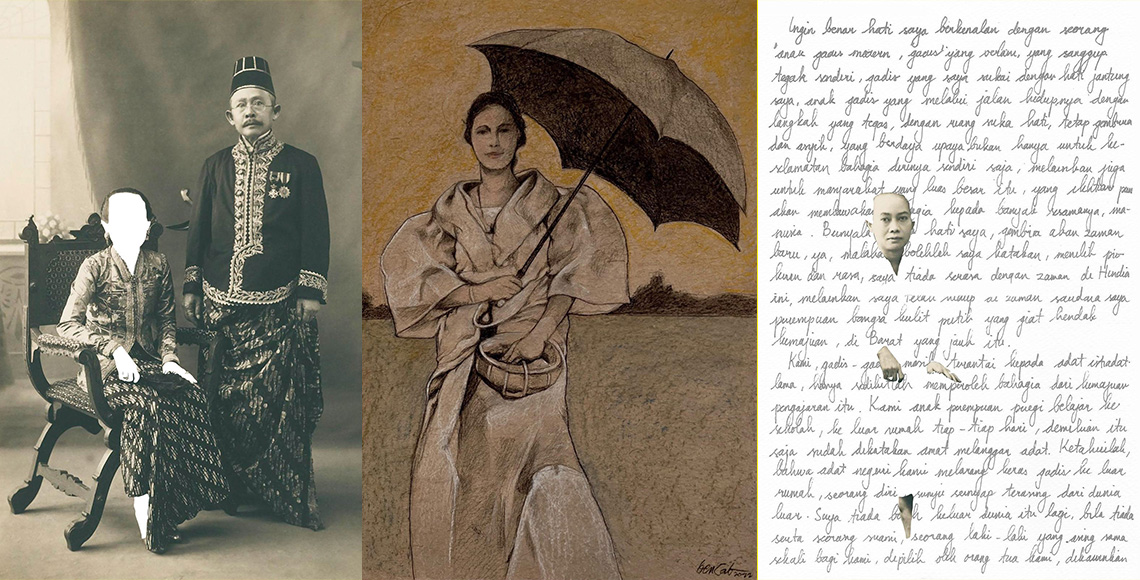 BenCab 2022
Ingin benar hati saya berkenalan dengan seorang
"anak gadis modern, gadis" yang berani, yang sanggup
tegak sendiri, gadis yang saya sukai dengan hati jantung
saya, anak gadis yang melalui jalan hidupnya dengan
langkah yang tegas, dengan riang suka hati, tetap gembira
dan asyik, yang berdaya upaya bukan hanya untuk ke-
selamatan bahagia dirinya sendiri saja, melainkan juga
untuk masyarakat yang luas besar itu, yang ikhtiar pun
akan membawakan kepada banyak sesamanya, ma-
nusia. hati saya, gembira akan zaman
baru, ya, bolehlah saya katakan, menilik pi-
kiran dan rasa, saya tiada serasa dengan zaman di Hindia
ini, melainkan saya zaman saudara saya
perempuan bangsa kulit putih yang giat hendak
kemajuan, di Barat yang jauh itu.
Kami, gadis- masih terantai kepada adat istiadat
lama, hanya memperoleh bahagia dari kemajuan
pengajaran itu. Kami anak perempuan pergi belajar ke
sekolah, ke luar rumah tiap-tiap hari, demikian itu
saja sudah dikatakan amat melanggar adat. Ketahuilah,
bahwa adat negeri kami melarang keras gadis ke luar
rumah, seorang diri sunyi senyap terasing dari dunia
luar. Saya tiada keluar dunia itu lagi, bila tiada
serta seorang suami, seorang laki-laki yang asing sama
sekali bagi kami, dipilih oleh orang tua kami, dikawinkan